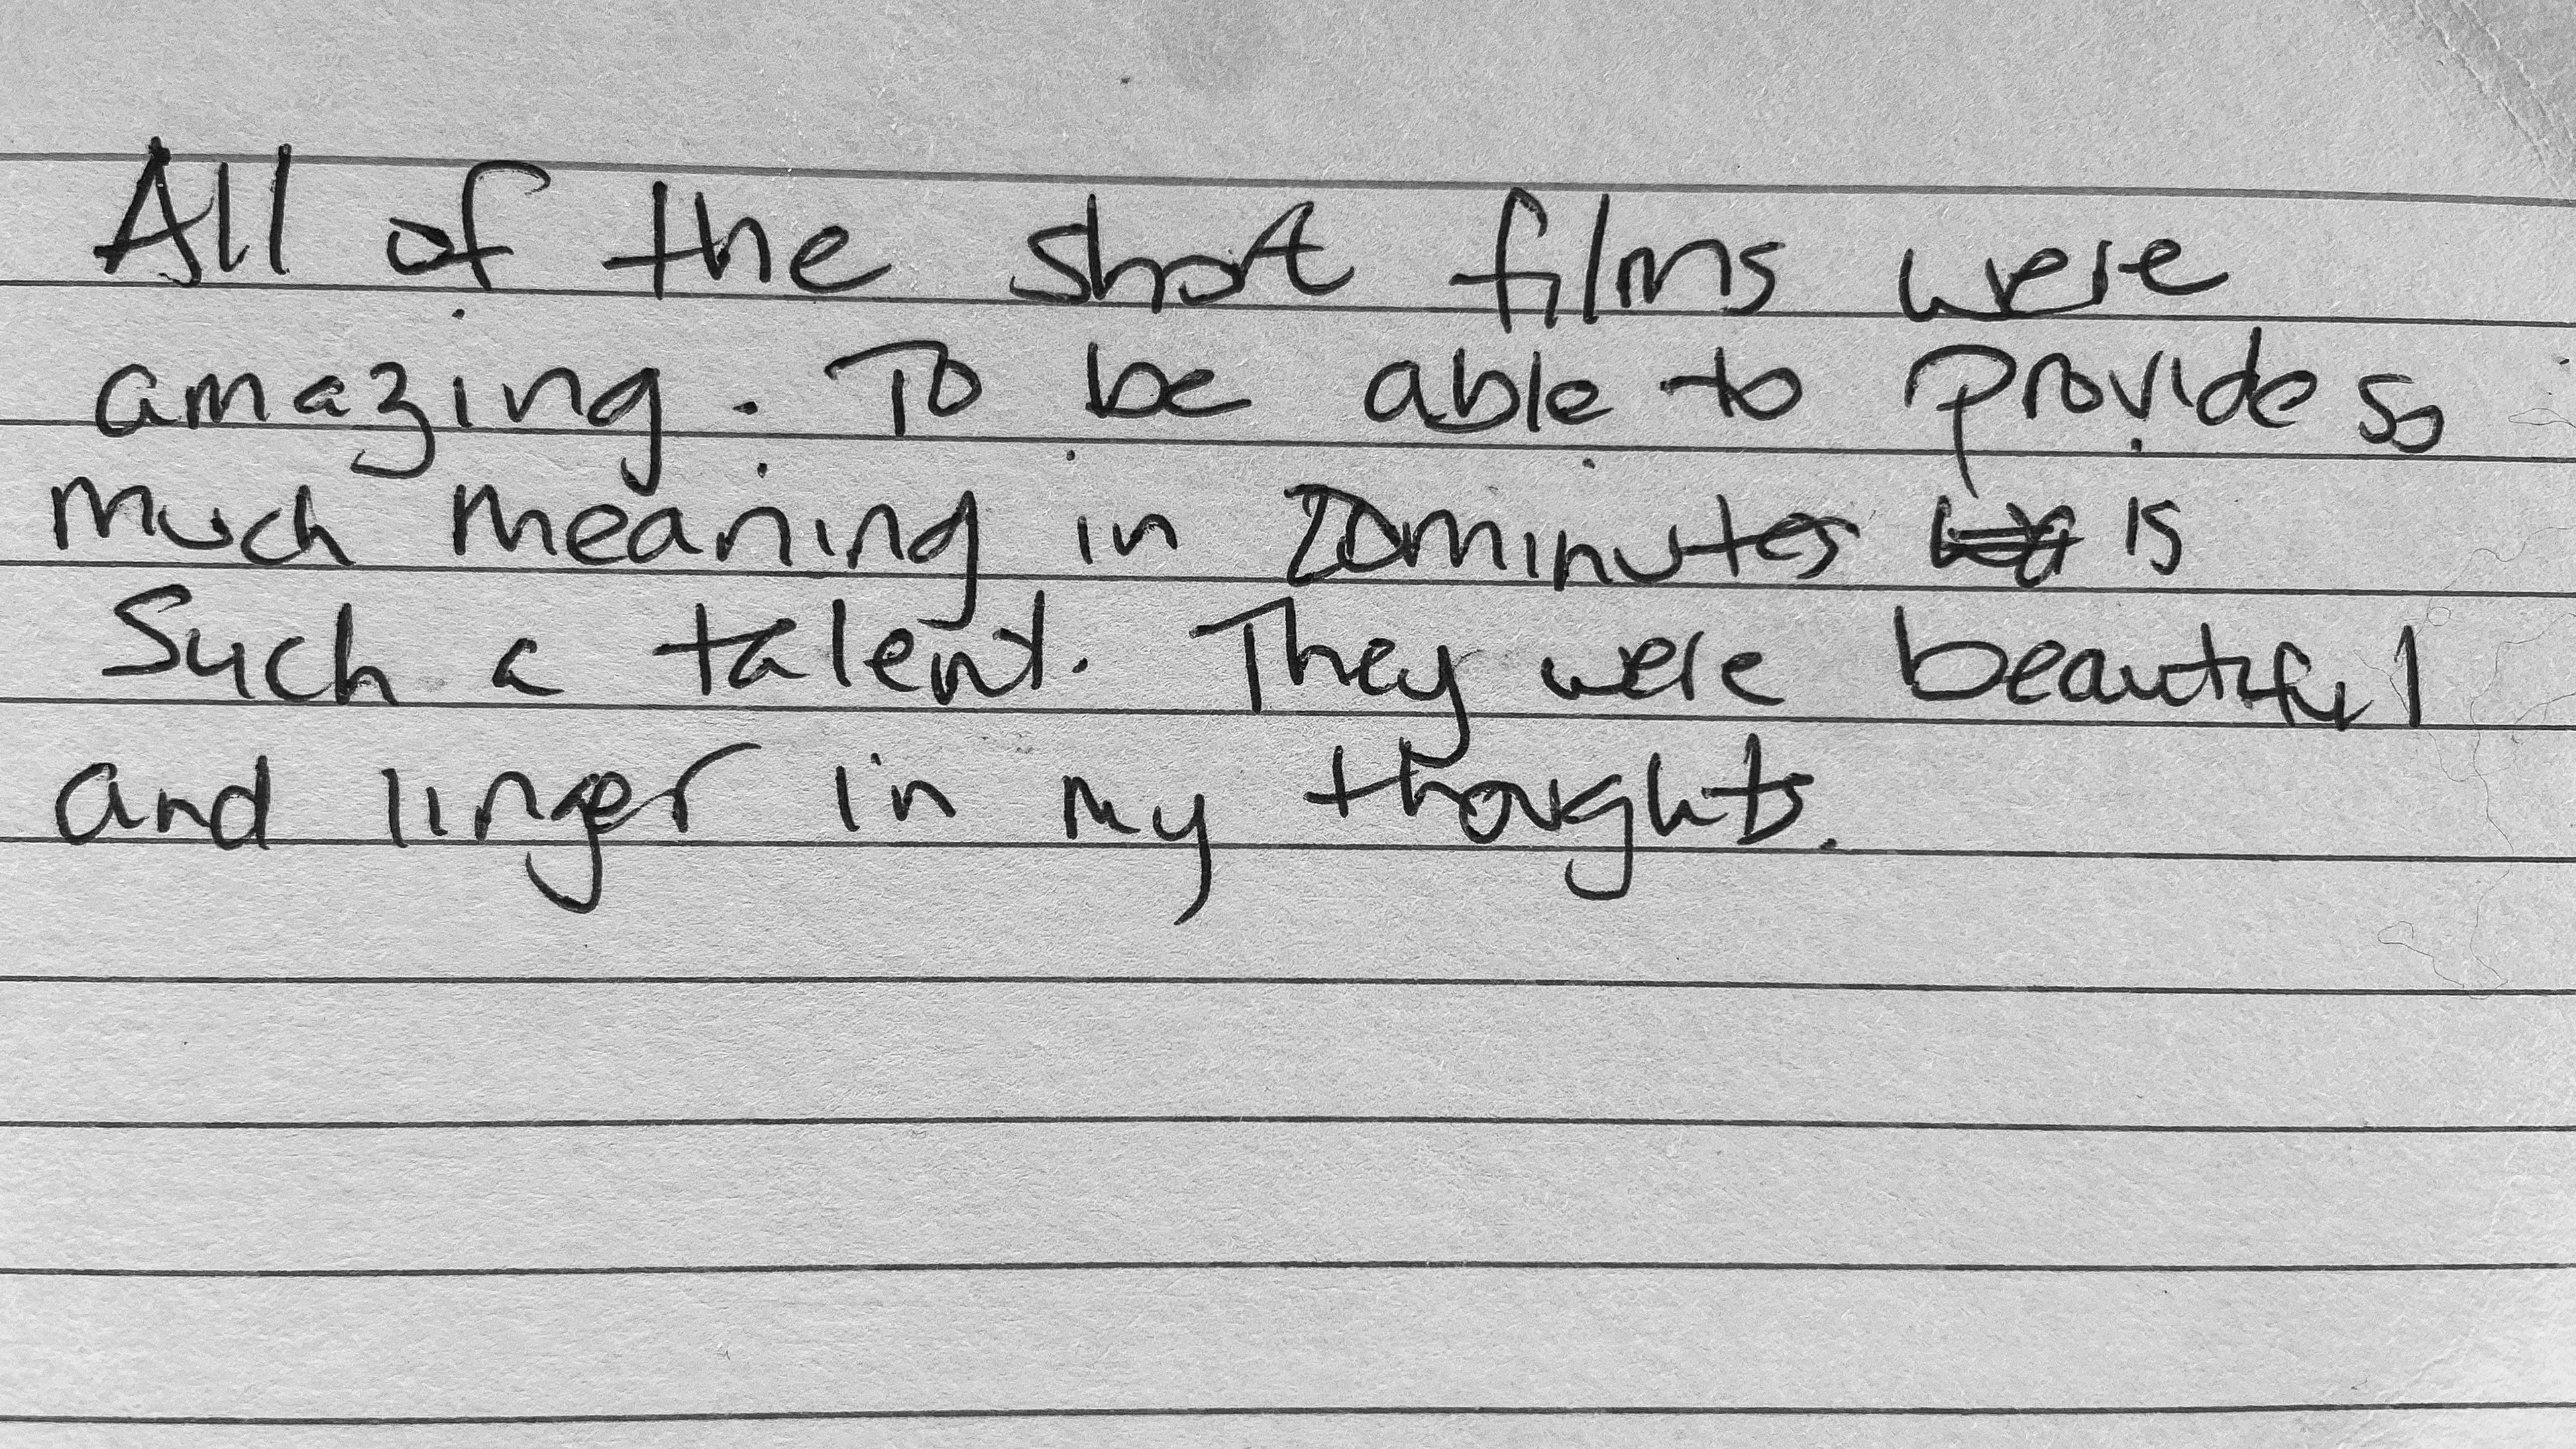 All of the short films were
amazing. To be able to provide so
much meaning in 20minutes is
Such a talent. They were beautiful
and linger in my thoughts.